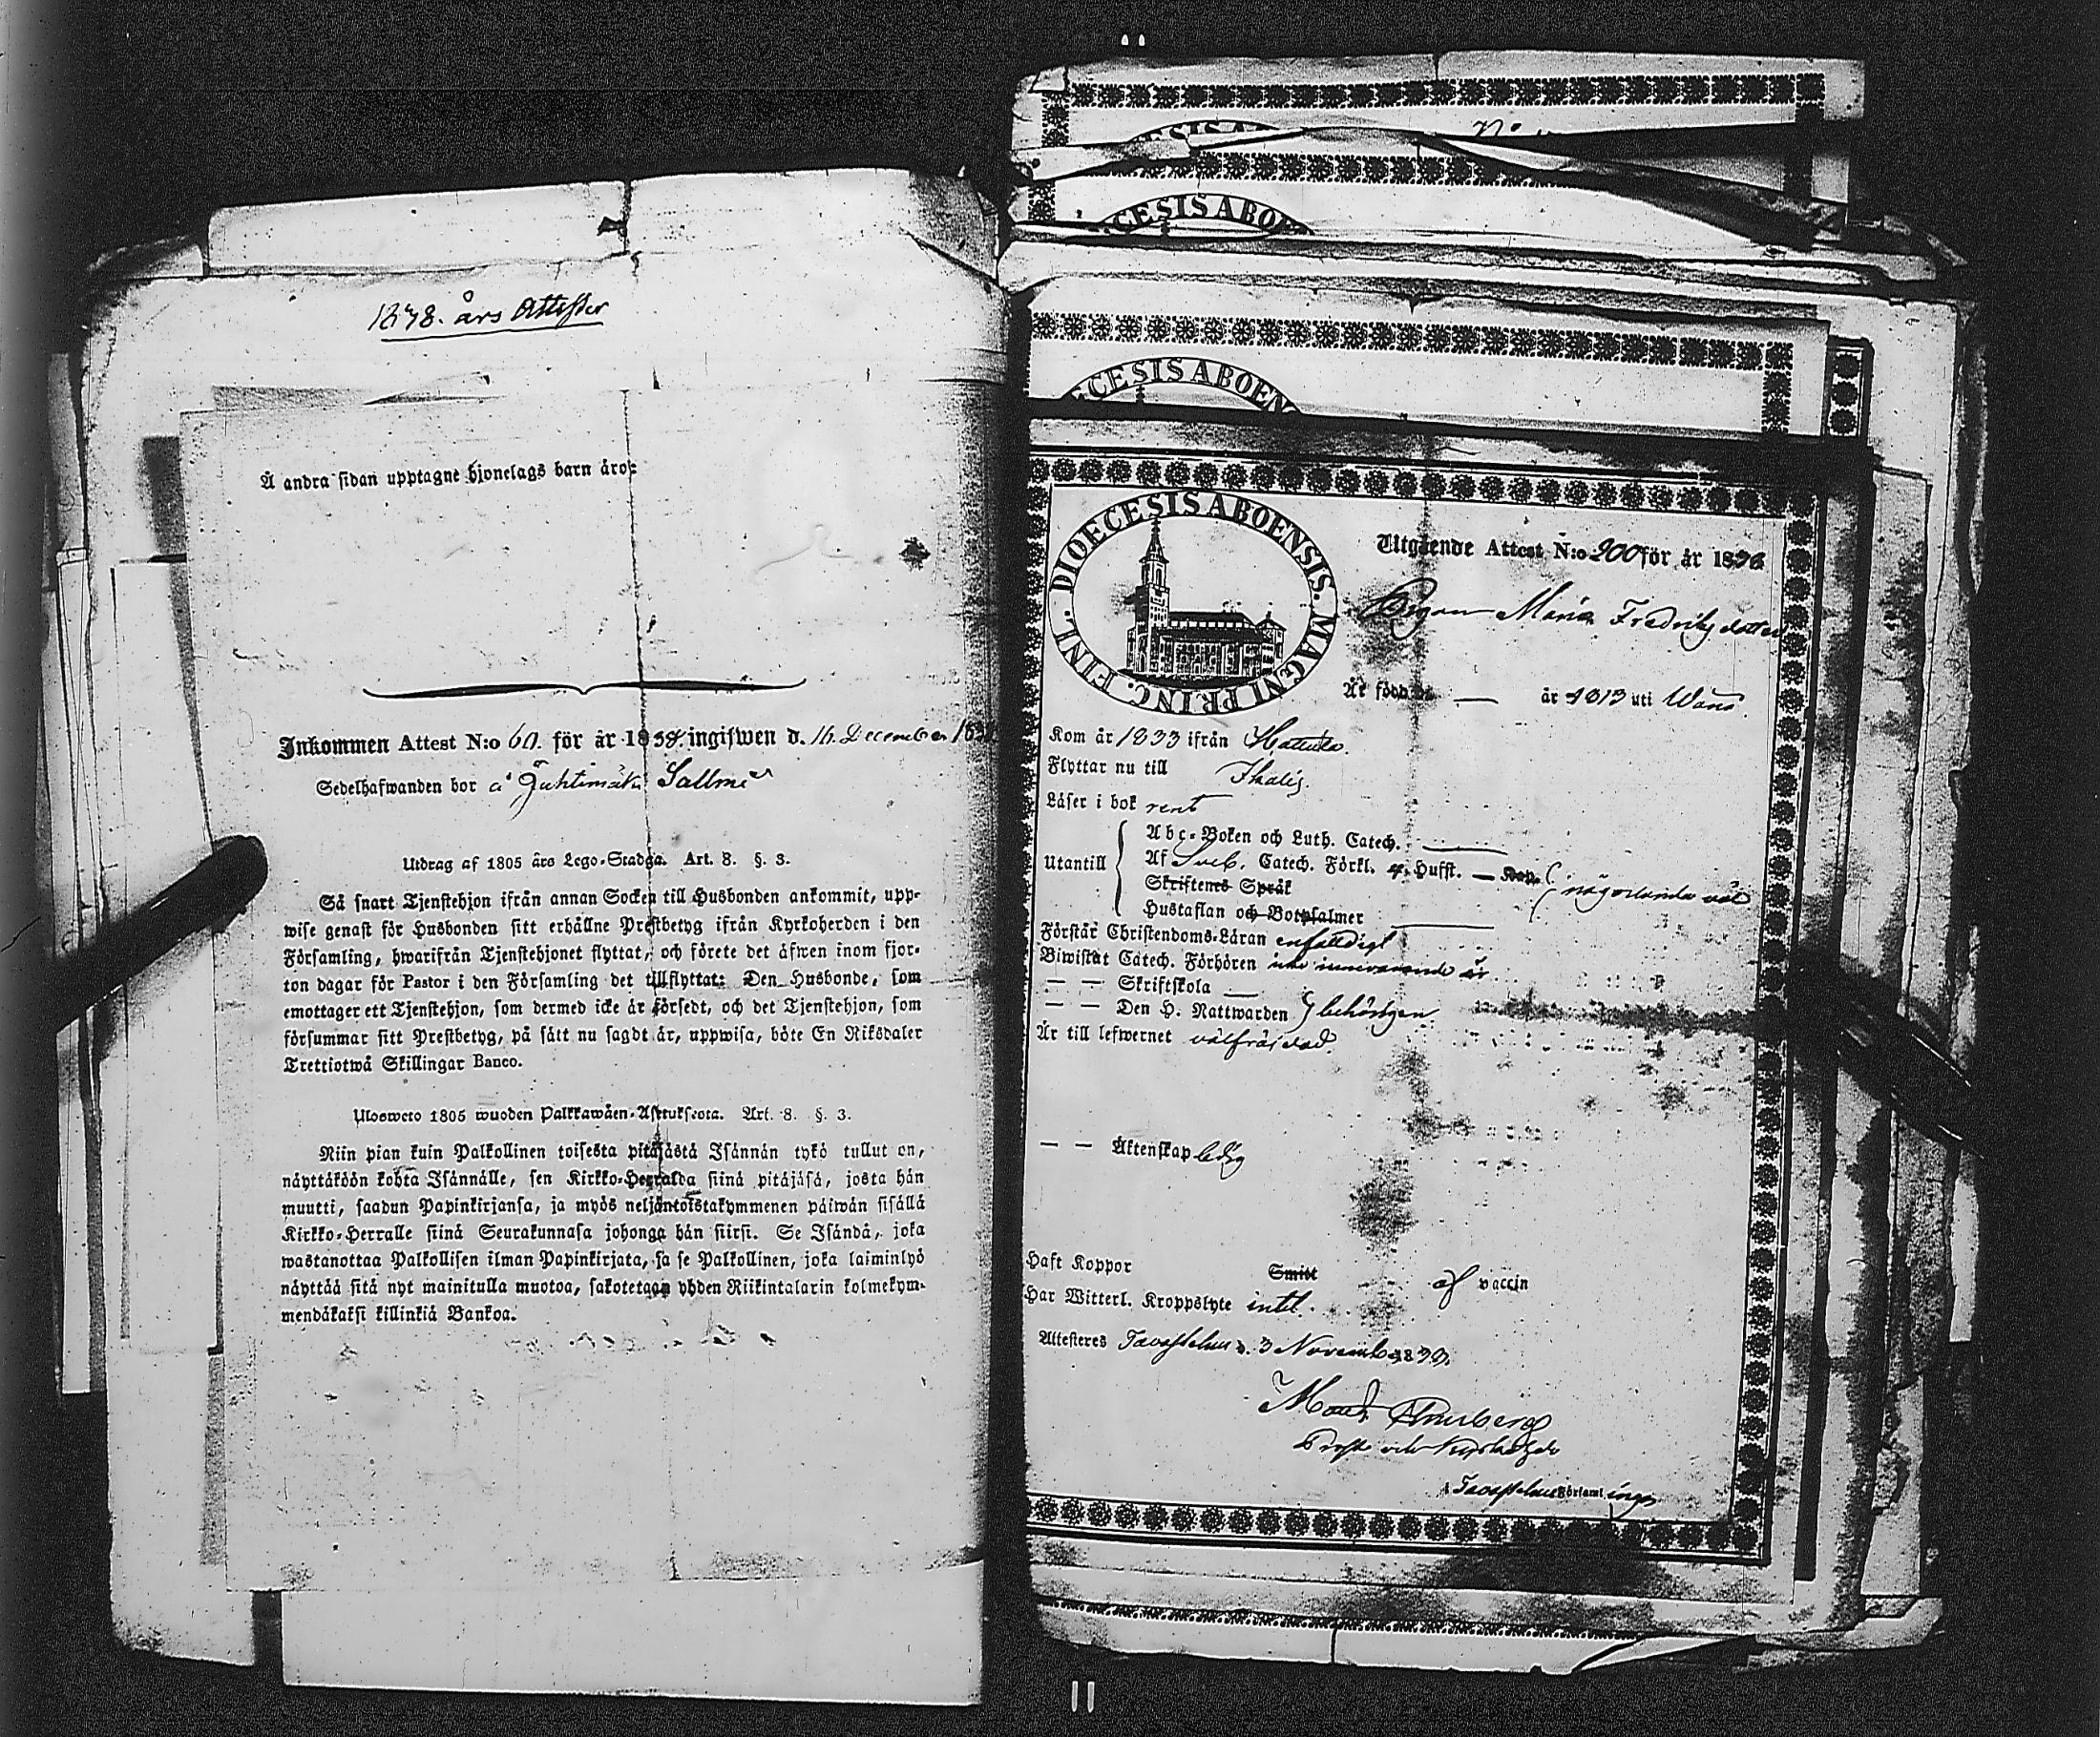 1838. års Attester
Å andra sidan upptagne hjonelags barn äro:
Inkommen Attest N:o 60. för år 1838. ingifwen d. 16. December 183
Sedelhafwanden bor å Juhtimäki Sallmi
Utdrag af 1805 års Lego-Stadga. Art. 8. §. 3.
Så snart Tjenstehjon ifrån annan Socken till Husbonden ankommit, upp-
wise genast för Husbonden sitt erhållne Prestbetyg ifrån Kyrkoherden i den
Församling, hwarifrån Tjenstehjonet flyttat, och förete det äfwen inom fjor-
ton dagar för Pastor i den Församling det tillflyttat: Den Husbonde, som
emottager ett Tjenstehjon, som dermed icke är försedt, och det Tjenstehjon, som
försummar sitt Prestbetyg, på sätt nu sagdt är, uppwisa, böte En Riksdaler
Trettiotwå Skillingar Banco.
Uloswето 1805 wuoden Palkkawäen-Asetuksesta. Art. 8. §. 3.
Niin pian kuin Palkollinen toisesta pitäjästä Isännän tykö tullut on,
näyttäköön kohta Isännälle, sen Kirkko-Herralda siinä pitäjäsä, josta hän
muutti, saadun Papinkirjansa, ja myös neljäntoistakymmenen päiwän sisällä
Kirkko-Herralle siinä Seurakunnasa johonga hän siirsi. Se Isändä, joka
wastanottaa Palkollisen ilman Papinkirjata, ja se Palkollinen, joka laiminlyö
näyttää sitä nyt mainitulla muotoa, sakotetaan yhden Riikintalarin kolmekym-
mendäkaksi killinkiä Bankoa.
CESIS ABO
ECESIS ABOEN
DIOECESIS ABOENSIS. MAGNI PRINC. FINL.
Utgående Attest N:o 200 för år 1838
Pigan Maria Fredriksdotter
Är född d. — år 1813 uti Wånå.
Kom år 1833 ifrån Hattula.
Flyttar nu till Ikalis.
Läser i bok rent
Utantill
Abc-Boken och Luth. Catech.
Af Sveb. Catech. Förkl. 4. Hufst. — Kap.
Skriftenes Språk
någorlunda väl
Hustaflan och Botpsalmer
Förstår Christendoms-Läran enfaldigt
Biwistat Catech. Förhören inte innevarande år
— — Skriftskola —
— — Den H. Nattwarden behörigen.
Är till lefwernet välfräjdad.
— — Äktenskap ledig
Haft Koppor Smitt af vaccin
Har Witterl. Kroppslyte intet.
Attesteres Tavastehus d. 3 November 1838.
Prost och Kyrkoherde
i Tavastehus Församl ingar